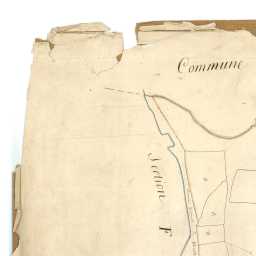 Commune
Section F